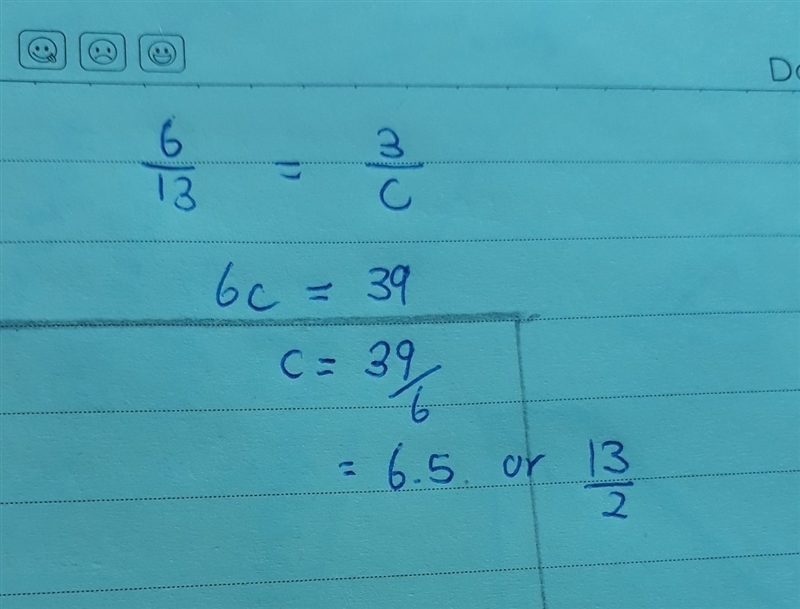 Da
6/13 = 3/c
6c = 39
c = 39/6
= 6.5. or 13/2